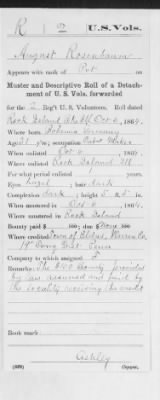 R 2 U.S. Vols.
August Rosenbaum
Appears with rank of Pvt on
Muster and Descriptive Roll of a Detach-
ment of U. S. Vols. forwarded
for the 2 Reg't U. S. Volunteers. Roll dated
Rock Island Ills Oct 6, 1864.
Where born Germany
Age 21 y'rs; occupation
When enlisted Oct 6, 1864
Where enlisted Rock Island Ill
For what period enlisted 1 years.
Eyes Hazel; hair dark
Complexion dark; height 5 ft. 5 in.
When mustered in Oct 6, 1864
Where mustered in Rock Island
Bounty paid $ 100; due $ 100
Where credited
19" Cong Dist Penn
Company to which assigned
Remarks: The bounty provided
by law assumed and paid by
the locality receiving the credit
Book mark:
Ashley
(339) Copyist.